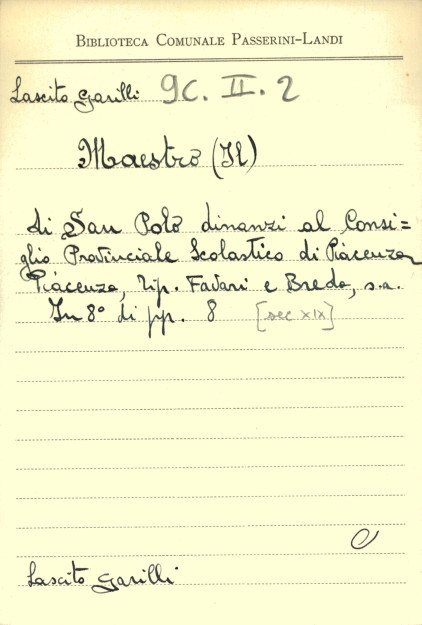 BIBLIOTECA COMUNALE PASSERINI-LANDI
Lascito Garilli 9C. II. 2
Maestro (Il)
di San Polo dinanzi al Consi=
glio Provinciale Scolastico di Piacenza
Piacenza, Tip. Favari e Breda, s.a.
In 8° di pp. 8 [sec XIX]
Lascito Garilli